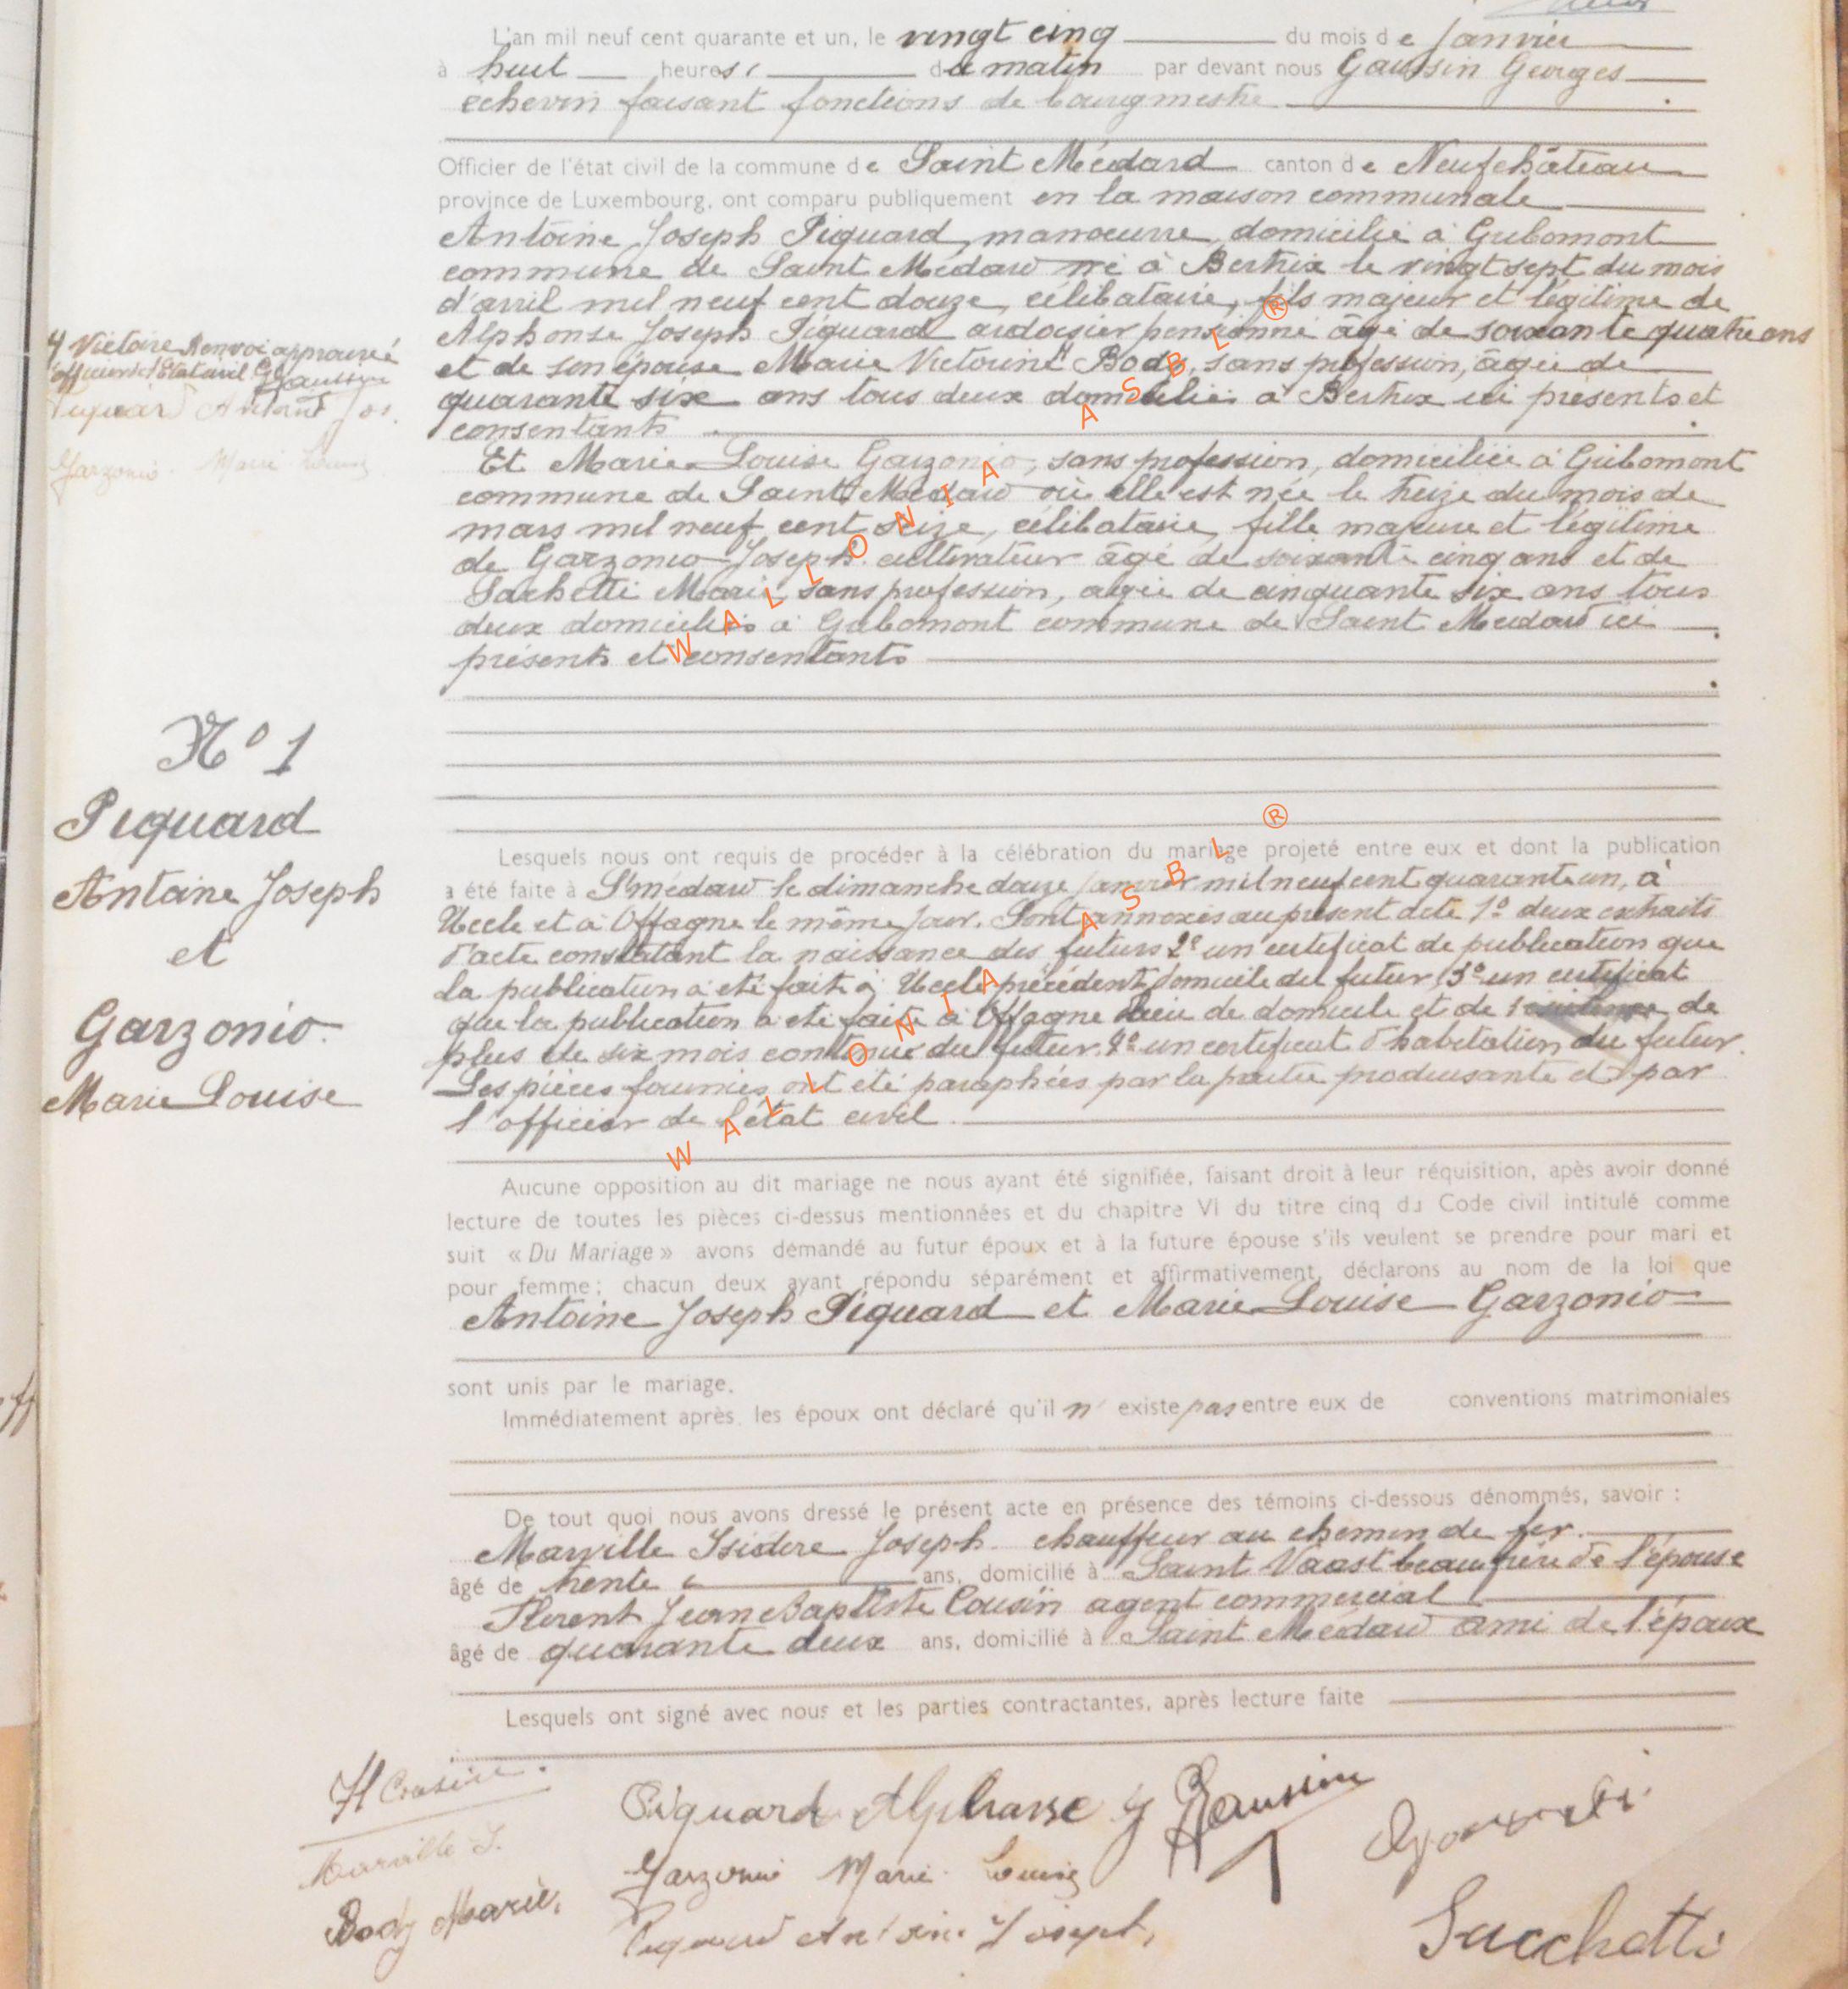 L'an mil neuf cent quarante et un, le vingt cinq du mois de Janvier
à huit heures du matin par devant nous Gaussin Georges
échevin faisant fonctions de bourgmestre
Officier de l'état civil de la commune de Saint Médard canton de Neufchâteau
province de Luxembourg, ont comparu publiquement en la maison communale
Antoine Joseph Piquard, manœuvre, domicilié à Gribomont
commune de Saint Médard né à Bertrix le vingt sept du mois
d'avril mil neuf cent douze, célibataire, fils majeur et légitime de
Alphonse Joseph Piquard ardoisier pensionné âgé de soixante quatre ans
et de son épouse Marie Victorine Body, sans profession, âgée de
quarante six ans tous deux domiciliés à Bertrix ici présents et
consentants
Et Marie Louise Garzonio, sans profession, domiciliée à Gribomont
commune de Saint Médard où elle est née le treize du mois de
mars mil neuf cent seize, célibataire, fille majeure et légitime
de Garzonio Joseph cultivateur âgé de soixante cinq ans et de
Sachetti Marie, sans profession, agée de cinquante six ans tous
deux domiciliés à Gribomont commune de Saint Médard ici
présents et consentants
Victoire Renvoi approuvé
officier de l'Etat civil G Gaussin
Piquard Antoine Jos.
Garzonio Marie Louise
N° 1
Piquard
Antoine Joseph
et
Garzonio
Marie Louise
Lesquels nous ont requis de procéder à la célébration du mariage projeté entre eux et dont la publication
a été faite à St médard le dimanche douze janvier mil neuf cent quarante un, à
Uccle et à Offagne le même jour. Sont annexés au présent acte 1° deux extraits
d'acte constatant la naissance des futurs 2° un certificat de publication que
la publication a été faite à Uccle précédent domicile du futur 3° un certificat
que la publication a été faite à Offagne lieu de domicile et de résidence de
plus de six mois continue du futur. 4° un certificat d'habitation du futur.
Les pièces fournies ont été paraphées par la partie produisante et par
l'officier de l'état civil
Aucune opposition au dit mariage ne nous ayant été signifiée, faisant droit à leur réquisition, apès avoir donné
lecture de toutes les pièces ci-dessus mentionnées et du chapitre VI du titre cinq du Code civil intitulé comme
suit « Du Mariage » avons demandé au futur époux et à la future épouse s'ils veulent se prendre pour mari et
pour femme; chacun deux ayant répondu séparément et affirmativement, déclarons au nom de la loi que
Antoine Joseph Piquard et Marie Louise Garzonio
sont unis par le mariage.
Immédiatement après, les époux ont déclaré qu'il n' existe pas entre eux de conventions matrimoniales
De tout quoi nous avons dressé le présent acte en présence des témoins ci-dessous dénommés, savoir :
Marville Isidore Joseph chauffeur au chemin de fer.
âgé de trente ans, domicilié à Saint Vaast beau frère de l'épouse
Florent Jean Baptiste Cousin agent commercial
âgé de quarante deux ans, domicilié à Saint Médard ami de l'époux
Lesquels ont signé avec nous et les parties contractantes, après lecture faite
Fl Cousin
Piquard Alphonse G Gaussin
Marville I.
Garzonio Marie Louise
Body Marie.
Piquard Antoine Joseph,
Sacchetti
WALLONIA ASBL ®
WALLONIA ASBL ®